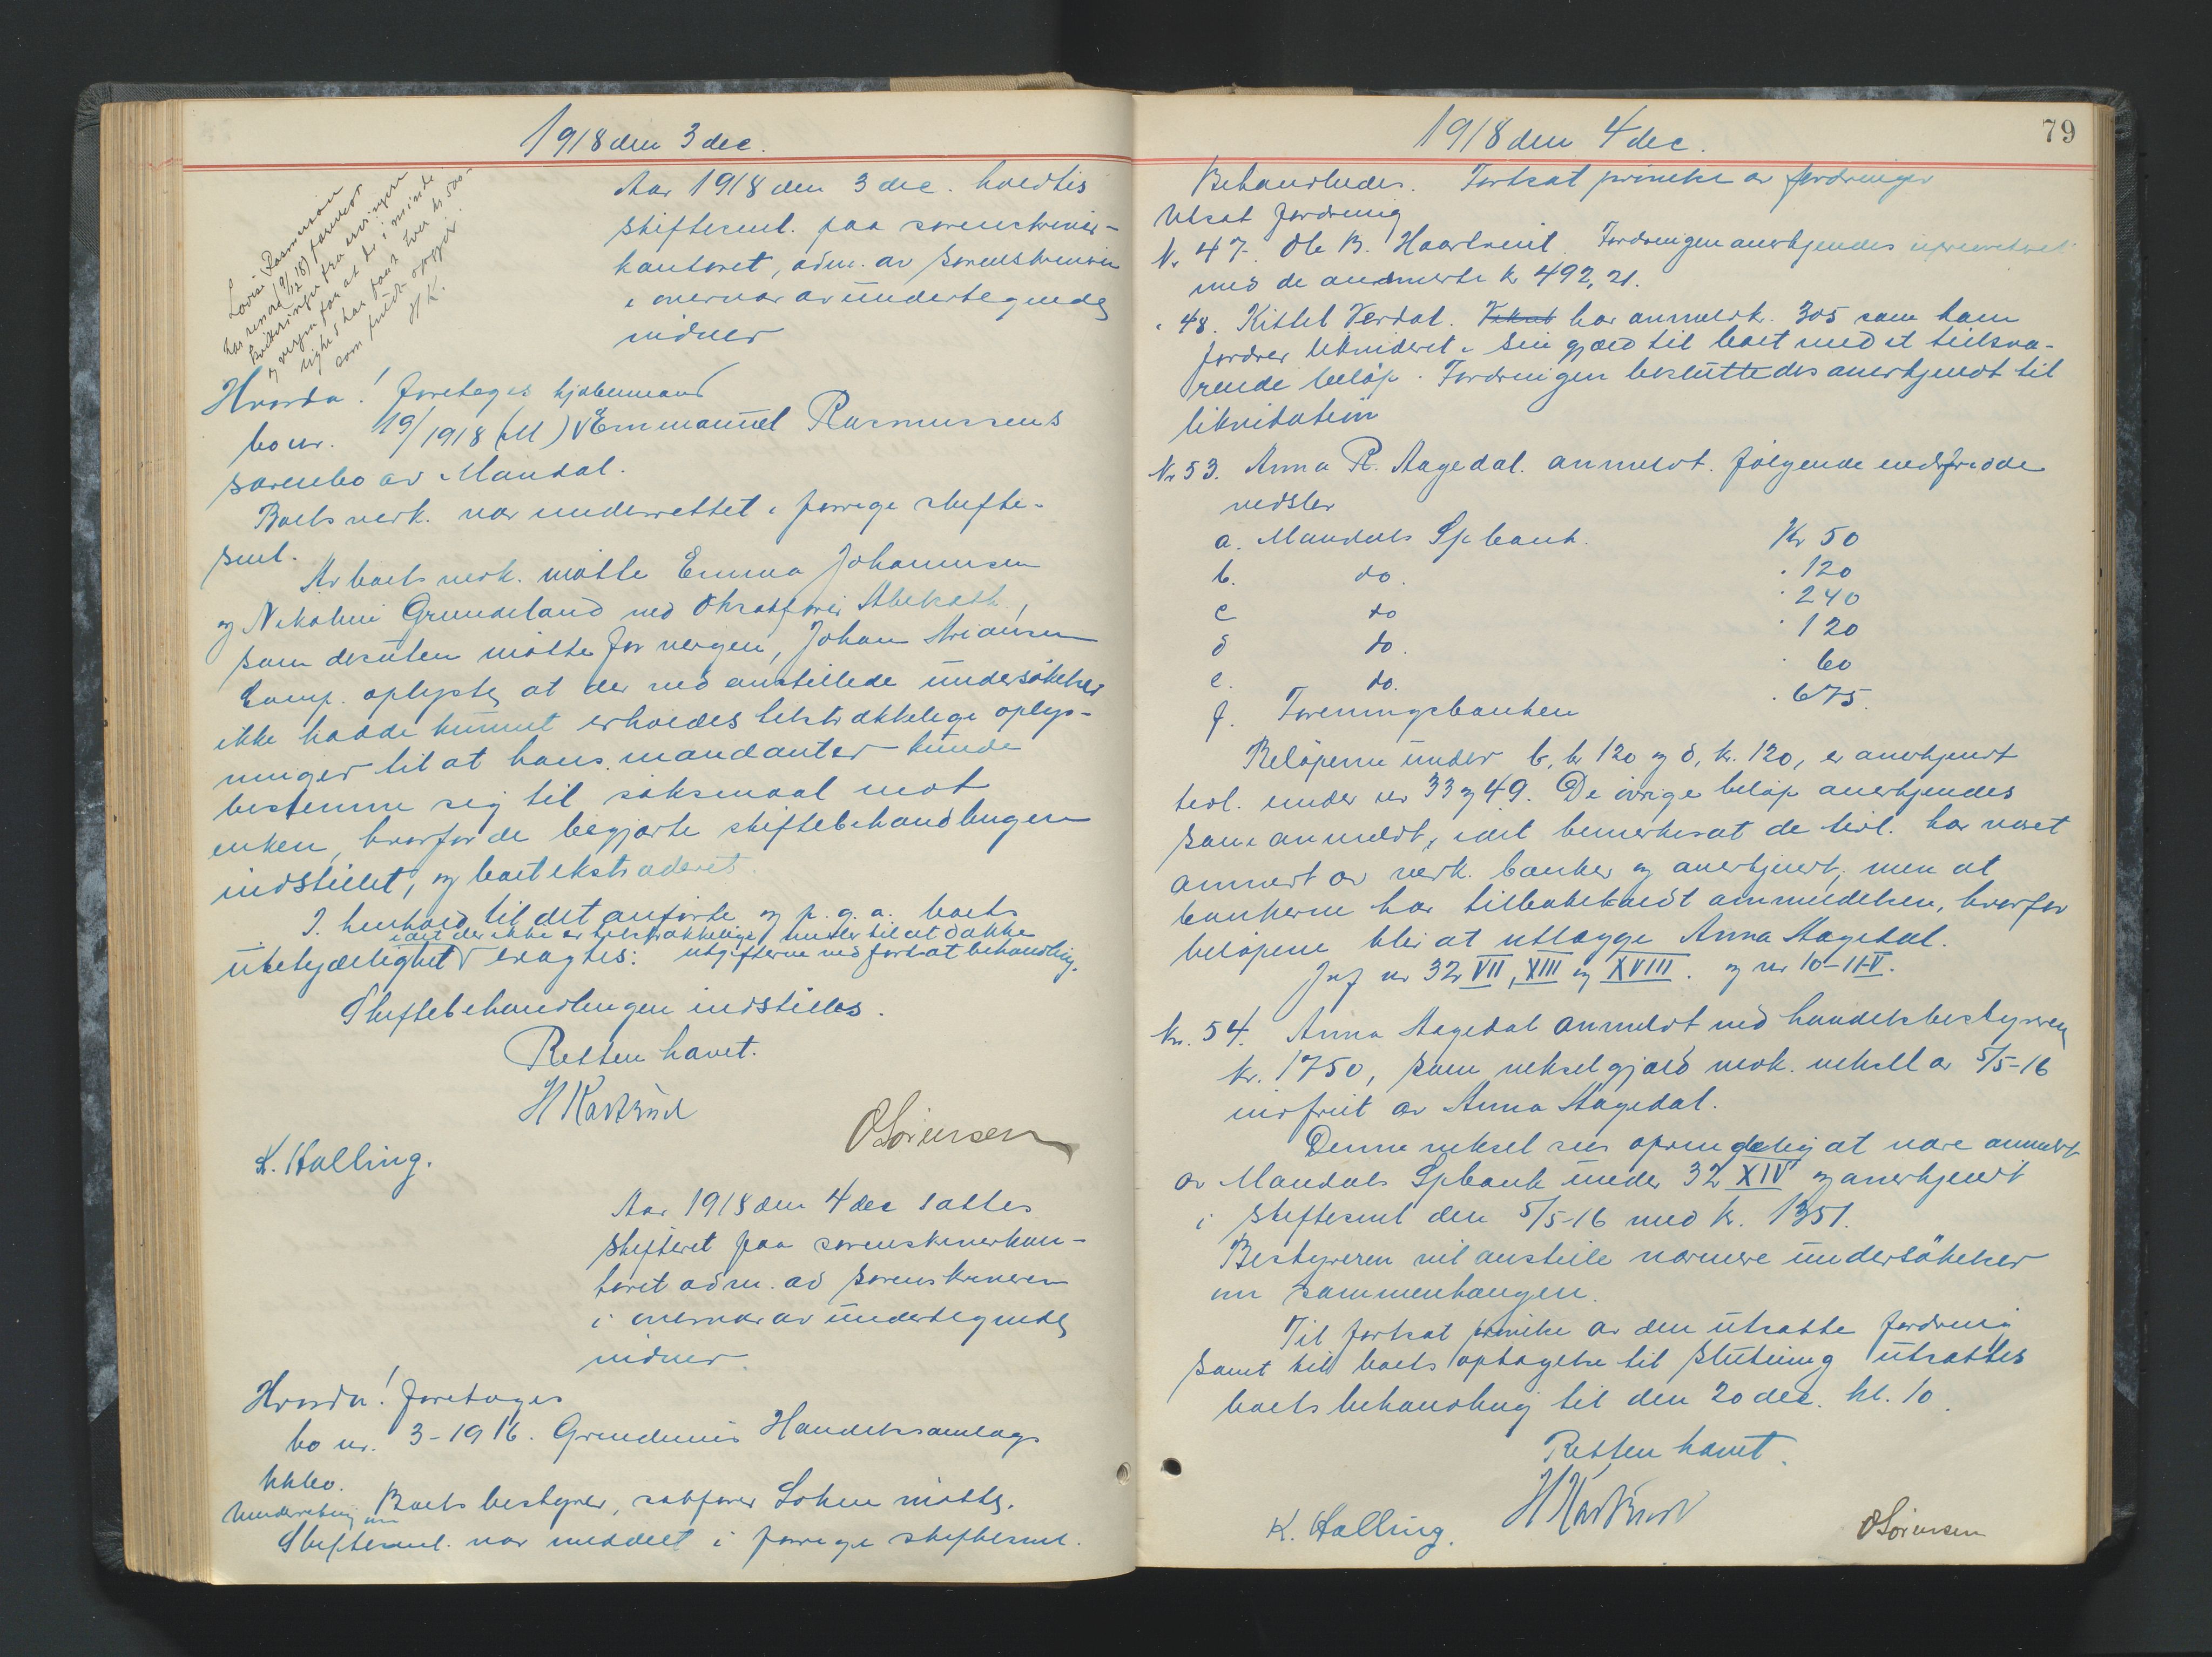 1918 den 3 dec.
Aar 1918 den 3 dec. holdtis
skiftesml. paa sorenskriver-
kontoret, adm. av sorenskriveren
i overvær av undertegnede
vidner
Lovise Rasmussen
har 19/12 18
og verge for at de i minde-
lighet har faat over kr 500-
som fuldt opgjør.
H K.
Hvorda! foretoges kjøbmand
bo nr. 19/1918 (M) Emmanuel Rasmussens
særebo av Mandal.
Boets vedk. var underrettet i forrige skifte-
sml.
Av boets vedk. møtte Emma Johannesen
og Nikoline Grundeland ved O.rsakfører Abelseth,
som desuten møtte for vergen, Johan Ariansen
Comp. oplyste, at der ved anstillede undersøkelser
ikke hadde kunnet erholdes tilstrækkelige oplys-
ninger til at hans mandanter kunde
bestemme sig til søksmaal mot
enken, hvorfor de begjærte skiftebehandlingen
indstillet, og boet ekstraderet.
I henhold til det anførte og p. g. a. boets
idet der ikke er tilstrækkelige midler til at dække
ubetydelighet eragtes: utgifterne ved fortsat behandling.
Skiftebehandlingen indstilles.
Retten hævet.
K. Halling.
OSørensen
Aar 1918 den 4 dec sattes
skifteret paa sorenskriverkon-
toret adm. av sorenskriveren
i overvær av undertegnede
vidner.
Hvorda! foretoges
bo nr. 3-1916. Grundennes Handelssamlags
kkbo.
Boets bestyrer, sakfører Lohne møtte.
Underretning om
skiftesml. var meddelt i forrige skiftesml.
1918 den 4 dec.
79
Behandledes. Fortsat prøvelse av fordringer
Utsat fordring
Nr 47. Ole B. Haartveit. Fordringen anerkjendes uprioritert
med de anmeldte kr 492,21.
" 48. Kittel Verdal. har anmeldt kr. 305 som ham
fordrer likvideret i sin gjæld til boet med et tilsva-
rende beløp. Fordringen besluttedes anerkjendt til
likvidation
Nr 53. Anna R. Aagedal. anmeldt. følgende indfriede
veksler
a. Mandals Spbank. Kr 50
b. do. " 120
c do " 240
d do. " 120
e. do. " 60
f. Foreningsbanken " 675.
Beløpene under b, kr 120 og d, kr. 120, er anerkjendt
tidl. under nr 33 og 49. De øvrige beløp anerkjendes
som anmeldt, idet bemerkes at de tidl. har været
anmeldt av vedk. banker og anerkjendt, men at
bankerne har tilbakekaldt anmeldelsen, hvorfor
beløpene blir at utlægge Anna Aagedal.
Jvf nr 32 VII, XIII og XVIII. og nr 10-11-V.
Nr. 54. Anna Aagedal anmeldt ved handelsbestyreren
kr. 1750, som vekselgjæld vedk. veksel av 5/5-16
indfriet av Anna Aagedal.
Denne veksel sees oprindelig at være anmeldt
av Mandals Spbank under 32 XIV og anerkjendt
i skiftesml den 5/5-16 med kr. 1351.
Bestyreren vil anstille nærmere undersøkelser
om sammenhængen.
Til fortsat prøvelse av den utsatte fordring
samt til boets optagelse til slutning utsattes
boets behandling til den 20 dec. kl. 10.
Retten hævet.
K. Halling.
OSørensen